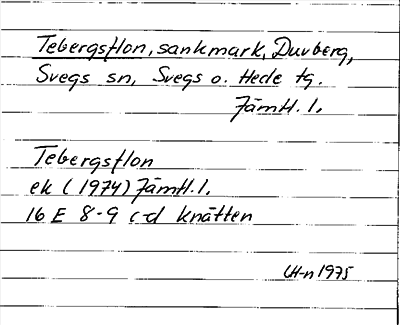 Tebergsflon, sankmark, Duvberg,
Svegs sn, Svegs o. Hede tg.
Jämtl. l.
Tebergsflon
ek (1974) Jämtl. l.
16 E 8-9 c-d Knätten
LH-n 1975